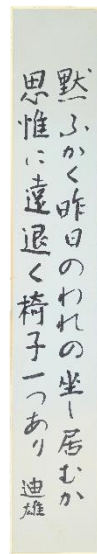 黙ふかく昨日のわれの坐し居むか
思惟に遠退く椅子一つあり
迪雄